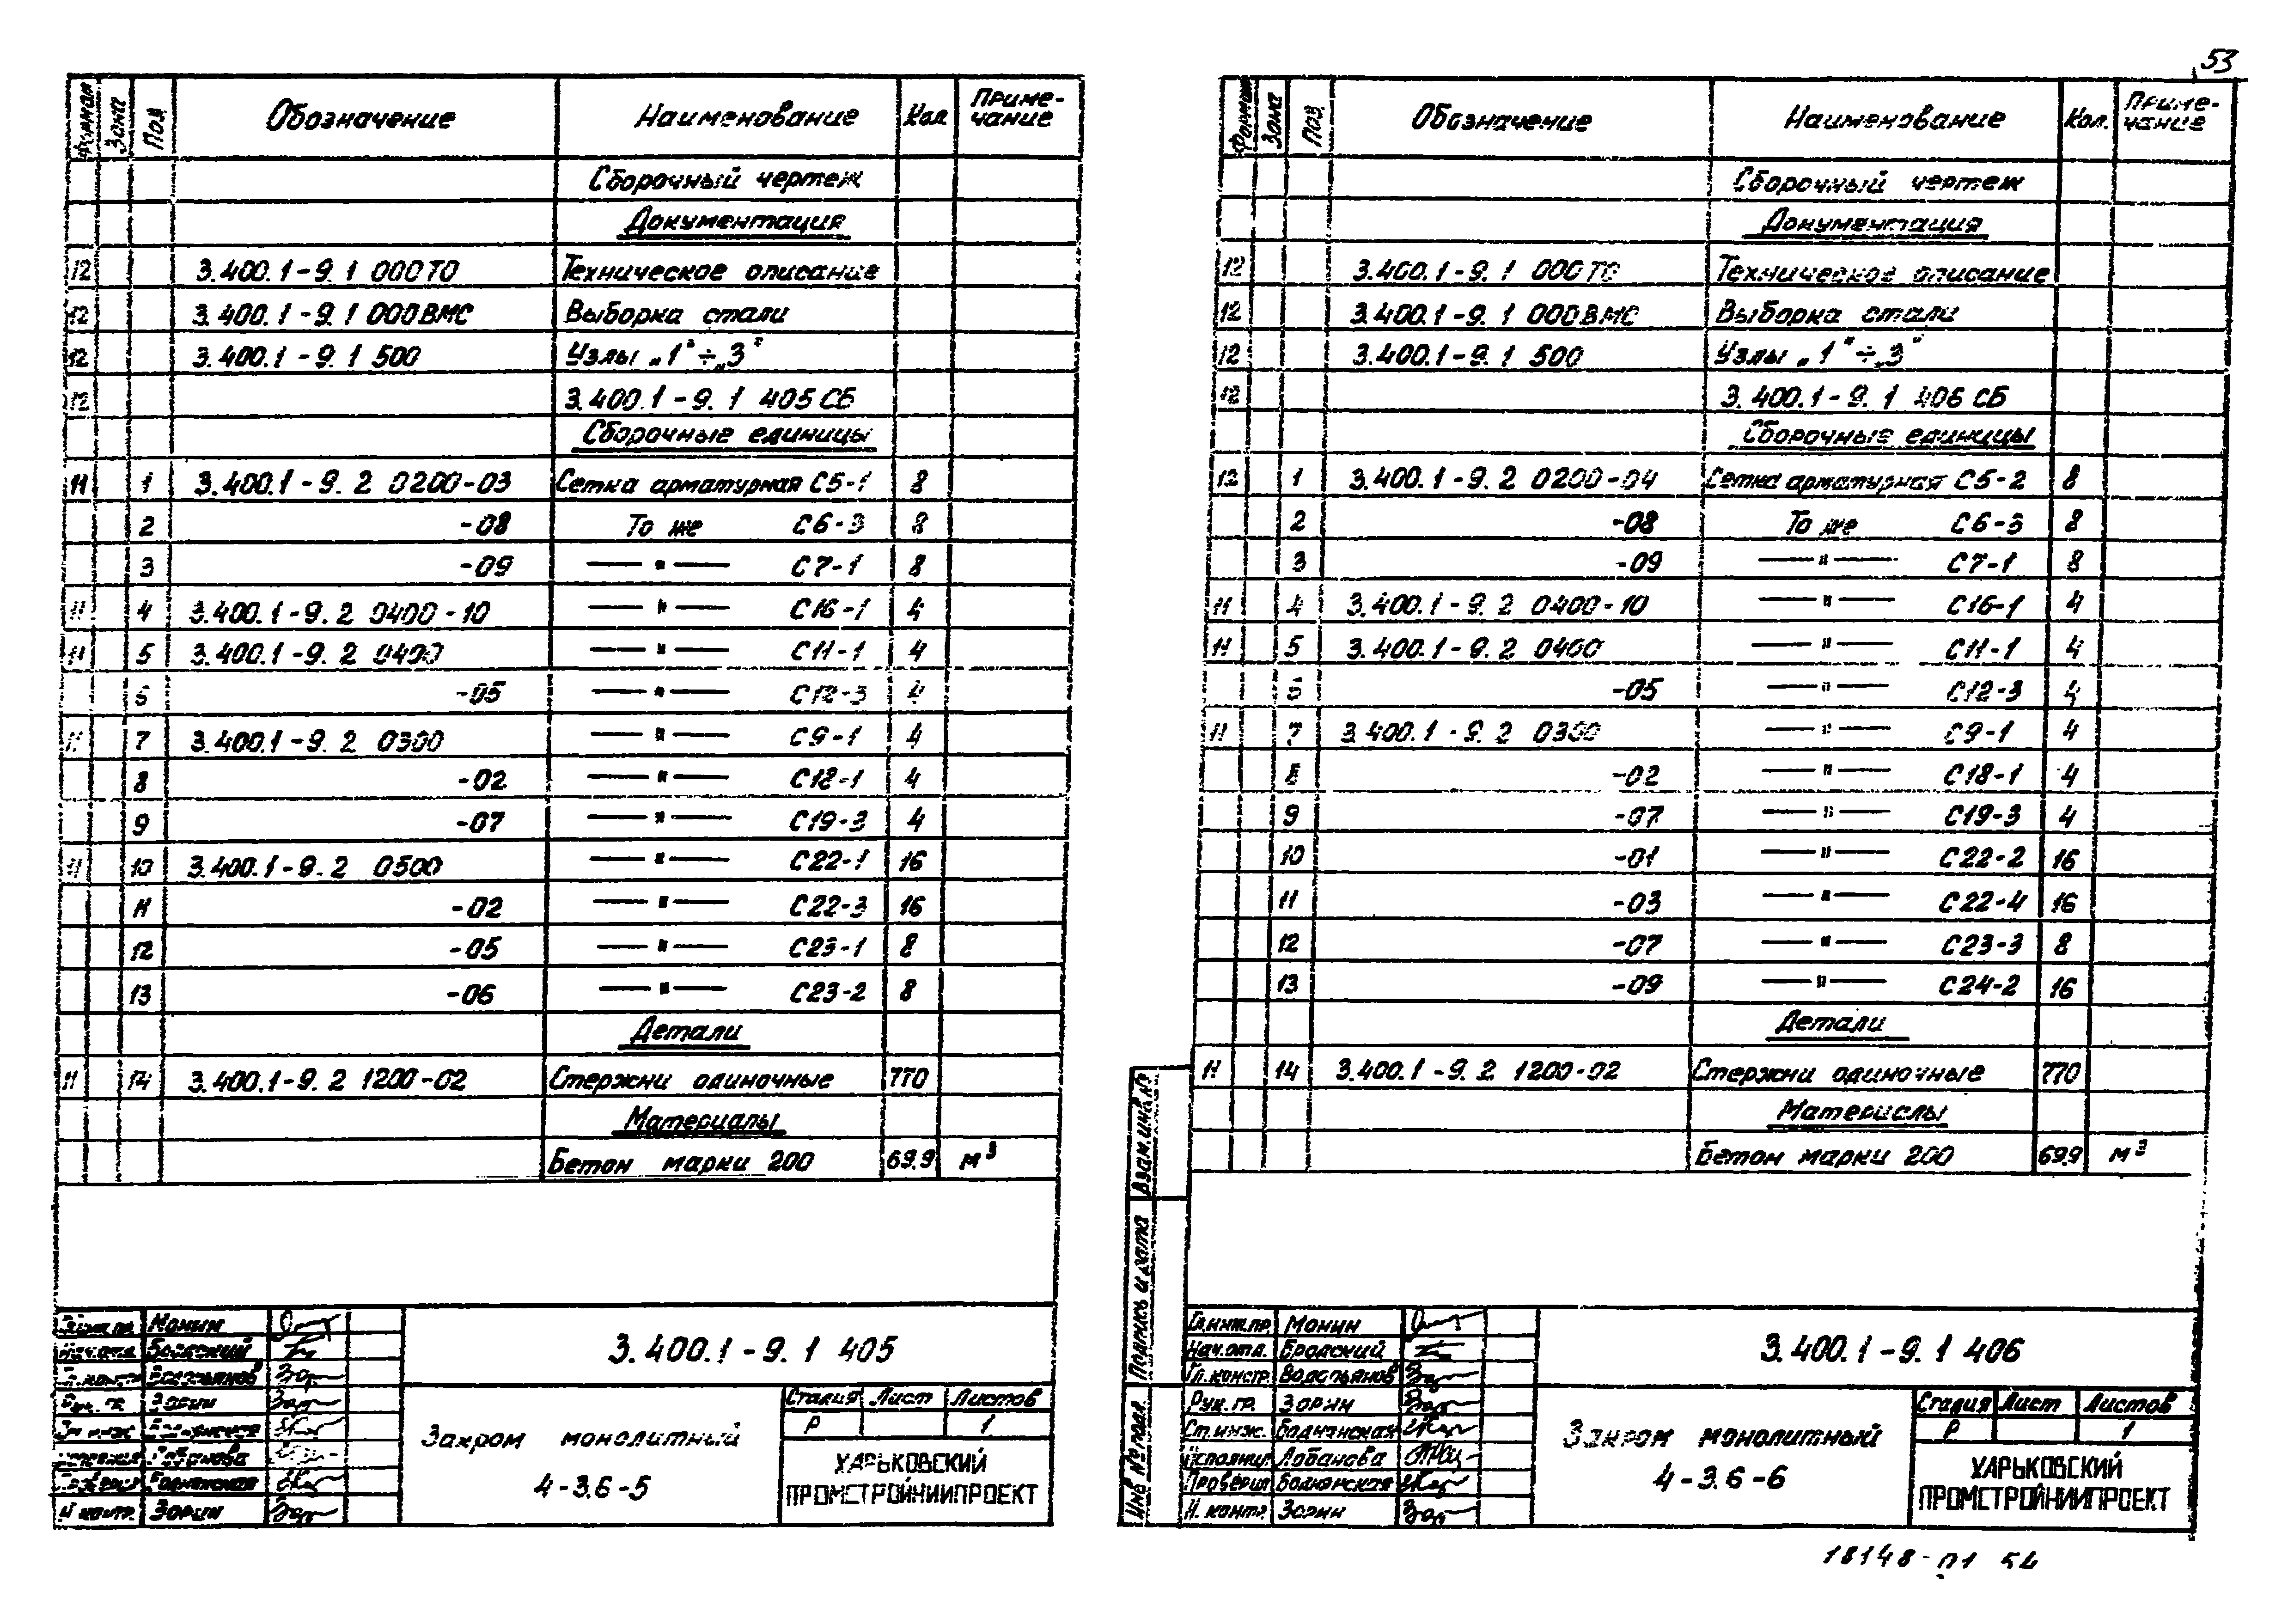 53
Формат Зона Поз Обозначение Наименование Кол Приме-
чание
Сборочный чертеж
Документация
12 3.400.1-9.1 000ТО Техническое описание
12 3.400.1-9.1 000ВМС Выборка стали
12 3.400.1-9.1 500 Узлы „1"÷„3"
12 3.400.1-9.1 405СБ
Сборочные единицы
11 1 3.400.1-9.2 0200-03 Сетка арматурная С5-1 8
2 -08 То же С6-3 8
3 -09 —"— С7-1 8
11 4 3.400.1-9.2 0400-10 —"— С16-1 4
11 5 3.400.1-9.2 0400 —"— С11-1 4
6 -05 —"— С12-3 4
11 7 3.400.1-9.2 0300 —"— С9-1 4
8 -02 —"— С18-1 4
9 -07 —"— С19-3 4
11 10 3.400.1-9.2 0500 —"— С22-1 16
11 -02 —"— С22-3 16
12 -05 —"— С23-1 8
13 -06 —"— С23-2 8
Детали
11 14 3.400.1-9.2 1200-02 Стержни одиночные 770
Материалы
Бетон марки 200 69.9 м³
Монин
Нач.отд. Бродский
Гл.констр. Водопьянов
Рук. гр. Зорин
Ст. инж. Боднянская
Исполнил Лобанова
Проверил Боднянская
Н. контр. Зорин
3.400.1-9.1 405
Закром монолитный
4-3.6-5
Стадия Лист Листов
Р 1
ХАРЬКОВСКИЙ
ПРОМСТРОЙНИИПРОЕКТ
Формат Зона Поз Обозначение Наименование Кол. Приме-
чание
Сборочный чертеж
Документация
12 3.400.1-9.1 000ТО Техническое описание
12 3.400.1-9.1 000ВМС Выборка стали
12 3.400.1-9.1 500 Узлы „1"÷„3"
12 3.400.1-9.1 406 СБ
Сборочные единицы
12 1 3.400.1-9.2 0200-04 Сетка арматурная С5-2 8
2 -08 То же С6-3 8
3 -09 —"— С7-1 8
11 4 3.400.1-9.2 0400-10 —"— С16-1 4
11 5 3.400.1-9.2 0400 —"— С11-1 4
6 -05 —"— С12-3 4
11 7 3.400.1-9.2 0300 —"— С9-1 4
8 -02 —"— С18-1 4
9 -07 —"— С19-3 4
10 -01 —"— С22-2 16
11 -03 —"— С22-4 16
12 -07 —"— С23-3 8
13 -09 —"— С24-2 16
Детали
11 14 3.400.1-9.2 1200-02 Стержни одиночные 770
Материалы
Бетон марки 200 69.9 м³
Взам.инв.№
Подпись и дата
Инв № подл.
Гл.инж.пр. Монин
Нач.отд. Бродский
Гл.констр. Водопьянов
Рук. гр. Зорин
Ст. инж. Боднянская
Исполнил Лобанова
Проверил Боднянская
Н. контр. Зорин
3.400.1-9.1 406
Закром монолитный
4-3.6-6
Стадия Лист Листов
Р 1
ХАРЬКОВСКИЙ
ПРОМСТРОЙНИИПРОЕКТ
18148-01 54